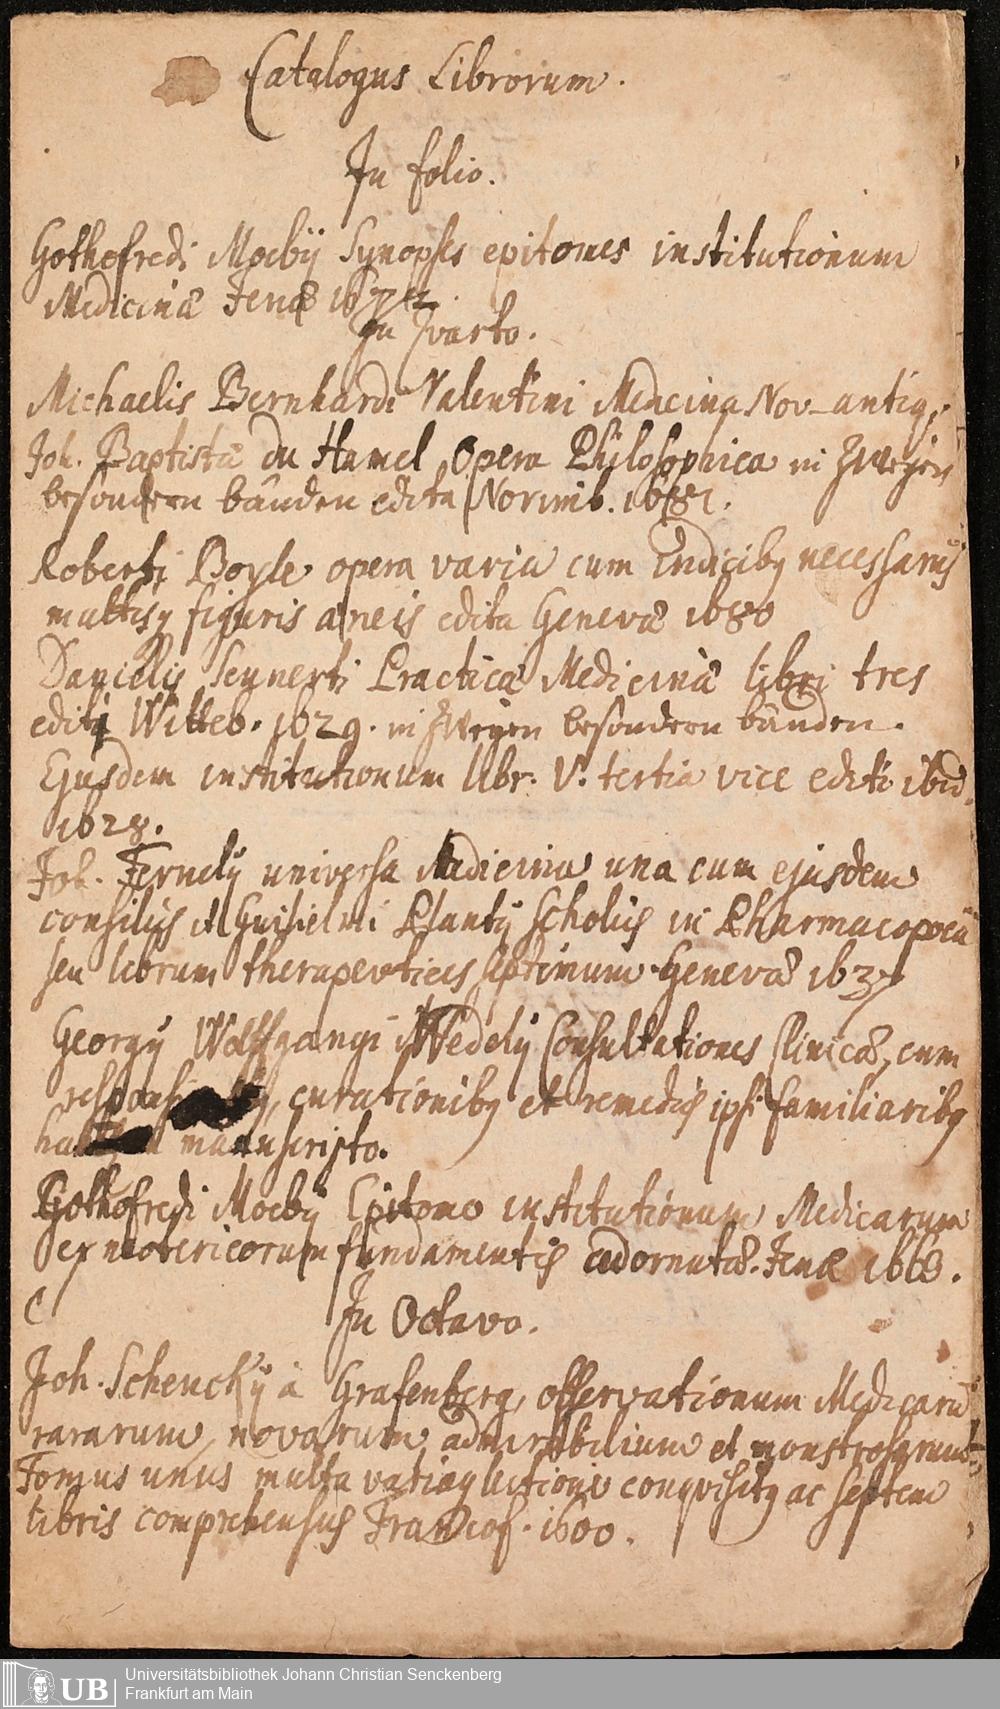 Catalogus Librorum.
In folio.
Gothofredi Moebij Synopsis epitomes institutionum
Medicinæ Jenæ
In Qvarto.
Michaelis Bernhardi Valentini Medicina Nov-antiq.
Joh. Baptistæ du Hamel Opera Philosophica in Zweyen
besondern bänden edita Norimb. 1681.
Roberti Boyle opera varia cum Indicibq necessarijs
multisq figuris æneis edita Genevæ 1680
Danielis Sennerti Practicæ Medicinæ libri tres
editi Witteb. 1629. in Zweyen besondern bänden.
Ejusdem institutionum libr. V. tertia vice editi ibid.
1628.
Joh. Fernelij universa Medicina una cum ejusdem
consilijs et Guilielmi Plantij scholijs in Pharmacopoeā
seu librum therapevtices septimum Genevæ 1637
Georgij Wolffgangi Wedelij Consultationes Clinicæ, cum
curationibq et remedijs ipsi familiaribq
manuscripto.
Gothofredi Moebij Epitome institutionum Medicarum
ex neotericorum fundamentis adornata. Jenæ 1663.
In Octavo.
Joh. Schenckij à Grafenberg, observationum Medicarū
rararum, novarum admirabilium et monstrosarum
Tomus unus multa lectione conqvisitq ac septem
libris comprehensus Francof. 1600.
UB
Universitätsbibliothek Johann Christian Senckenberg
Frankfurt am Main